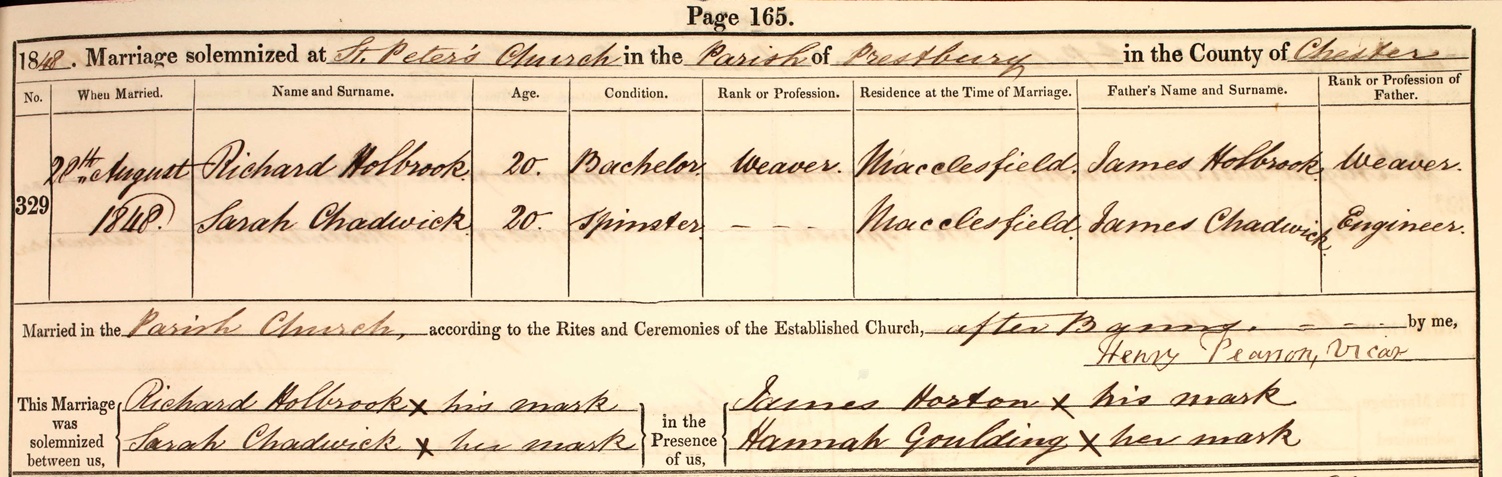 Page 165.
1848. Marriage solemnized at St. Peter's Church in the Parish of Prestbury in the County of Chester
No. When Married. Name and Surname. Age. Condition. Rank or Profession. Residence at the Time of Marriage. Father's Name and Surname. Rank or Profession of Father.
28th August Richard Holbrook. 20. Bachelor Weaver. Macclesfield. James Holbrook. Weaver.
329
1848. Sarah Chadwick. 20. Spinster. - - - Macclesfield. James Chadwick. Engineer.
Married in the Parish Church, according to the Rites and Ceremonies of the Established Church, after Banns. - - - by me,
Henry Pearson, Vicar
This Marriage was solemnized between us, Richard Holbrook X his mark in the Presence of us, James Horton X his mark
Sarah Chadwick X her mark Hannah Goulding X her mark